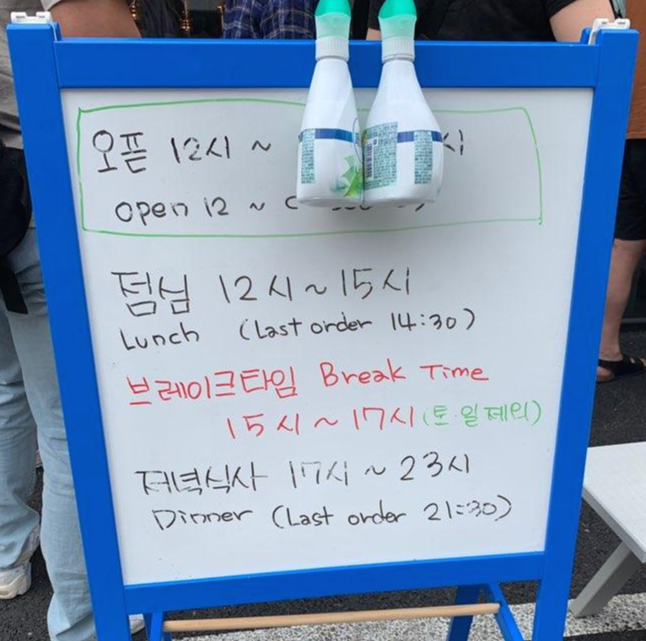 오픈 12시 ~ 시
open 12 ~
점심 12시 ~ 15시
Lunch (Last order 14:30)
브레이크타임 Break Time
15시 ~ 17시 (토·일 제외)
저녁식사 17시 ~ 23시
Dinner (Last order 21:30)